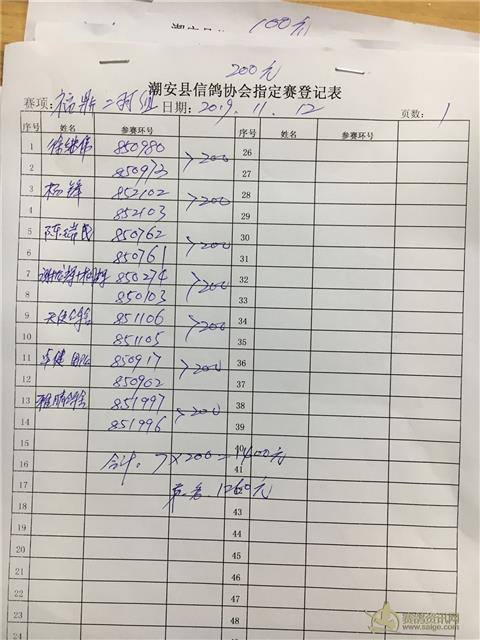 100元
200元
潮安县信鸽协会指定赛登记表
赛项: 福鼎二羽组 日期: 2019.11.12 页数: 1
序号 姓名 参赛环号 序号 姓名 参赛环号
1 徐继伟 850980 >200 26
2 850973 27
3 杨锋 852102 >200 28
4 852103 29
5 陈瑞民 850762 >200 30
6 850761 31
7 850274 >200 32
8 850103 33
9 天使鸽舍 851106 >200 34
10 851105 35
11 850917 >200 36
12 850902 37
13 851997 >200 38
14 851996 39
40
16 合计: 7×200=1400元 41
17 1260元 42
18 43
19 44
20 45
21 46
22 47
23 48
24 49
赛鸽资讯网
www.saige.com